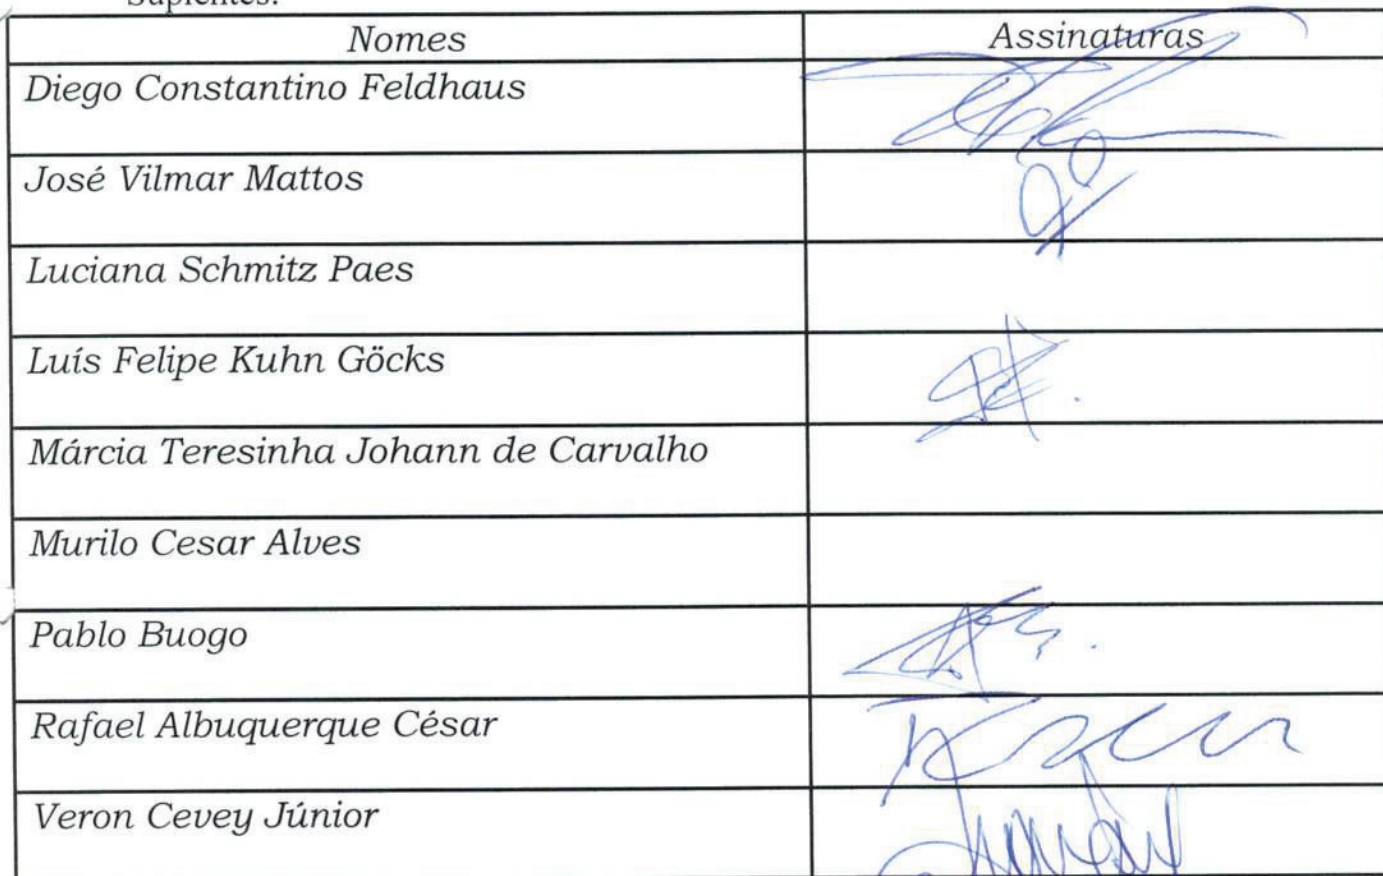 Suplentes:
Nomes Assinaturas
Diego Constantino Feldhaus
José Vilmar Mattos
Luciana Schmitz Paes
Luís Felipe Kuhn Göcks
Márcia Teresinha Johann de Carvalho
Murilo Cesar Alves
Pablo Buogo
Rafael Albuquerque César
Veron Cevey Júnior